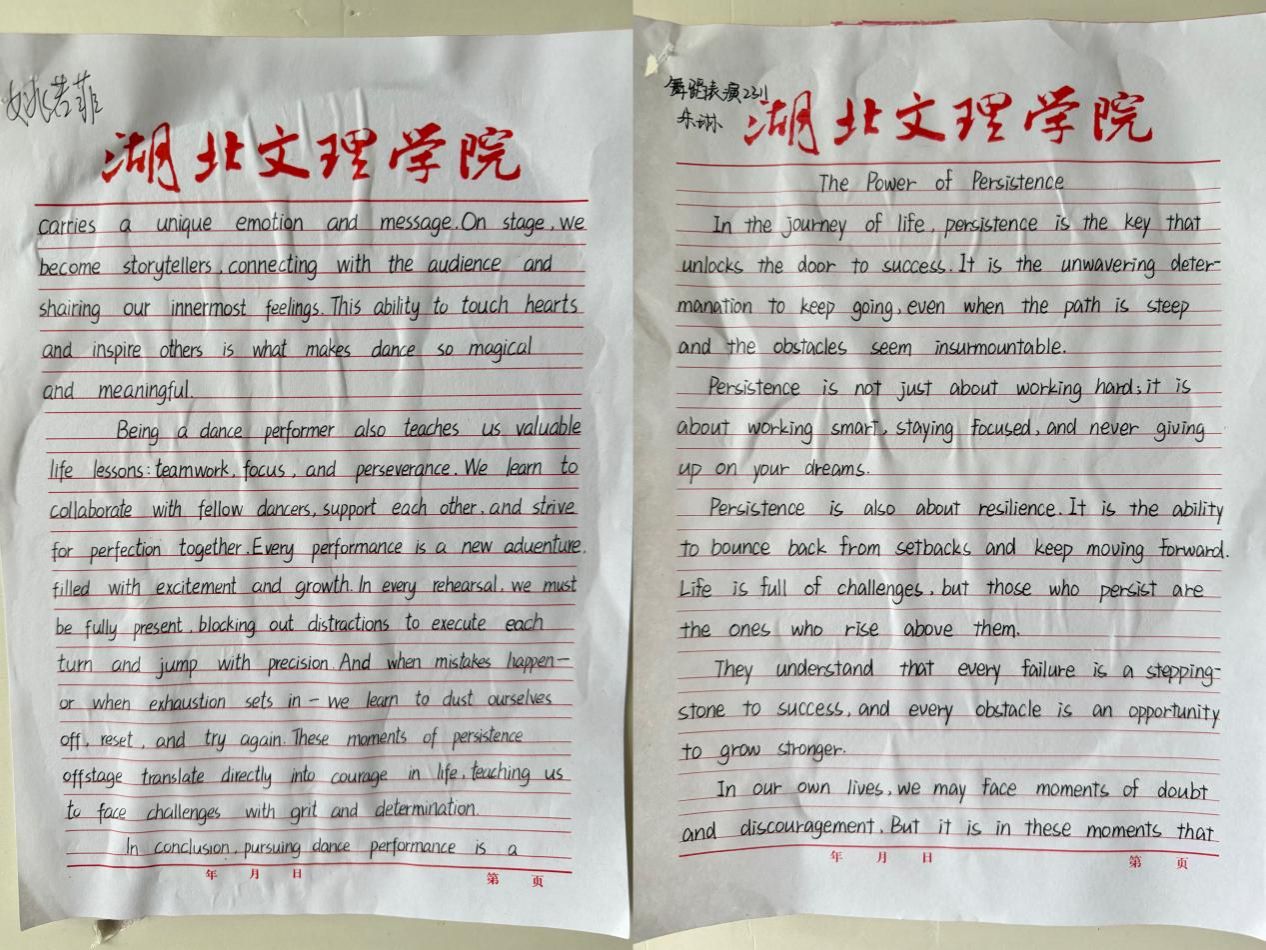 姚若菲
湖北文理学院
carries a unique emotion and message. On stage, we
become storytellers, connecting with the audience and
shairing our innermost feelings. This ability to touch hearts
and inspire others is what makes dance so magical
and meaningful.
Being a dance performer also teaches us valuable
life lessons: teamwork, focus, and perseverance. We learn to
collaborate with fellow dancers, support each other, and strive
for perfection together. Every performance is a new aduenture,
filled with excitement and growth. In every rehearsal, we must
be fully present, blocking out distractions to execute each
turn and jump with precision. And when mistakes happen—
or when exhaustion sets in — we learn to dust ourselves
off, reset, and try again. These moments of persistence
offstage translate directly into courage in life, teaching us
to face challenges with grit and determination.
In conclusion, pursuing dance performance is a
年 月 日 第 页
舞蹈表演2311
朱琳
湖北文理学院
The Power of Persistence
In the journey of life, persistence is the key that
unlocks the door to success. It is the unwavering deter-
manation to keep going, even when the path is steep
and the obstacles seem insurmountable.
Persistence is not just about working hard; it is
about working smart, staying focused, and never giving
up on your dreams.
Persistence is also about resilience. It is the ability
to bounce back from setbacks and keep moving forward.
Life is full of challenges, but those who persist are
the ones who rise above them.
They understand that every failure is a stepping-
stone to success, and every obstacle is an opportunity
to grow stronger.
In our own lives, we may face moments of doubt
and discouragement. But it is in these moments that
年 月 日 第 页